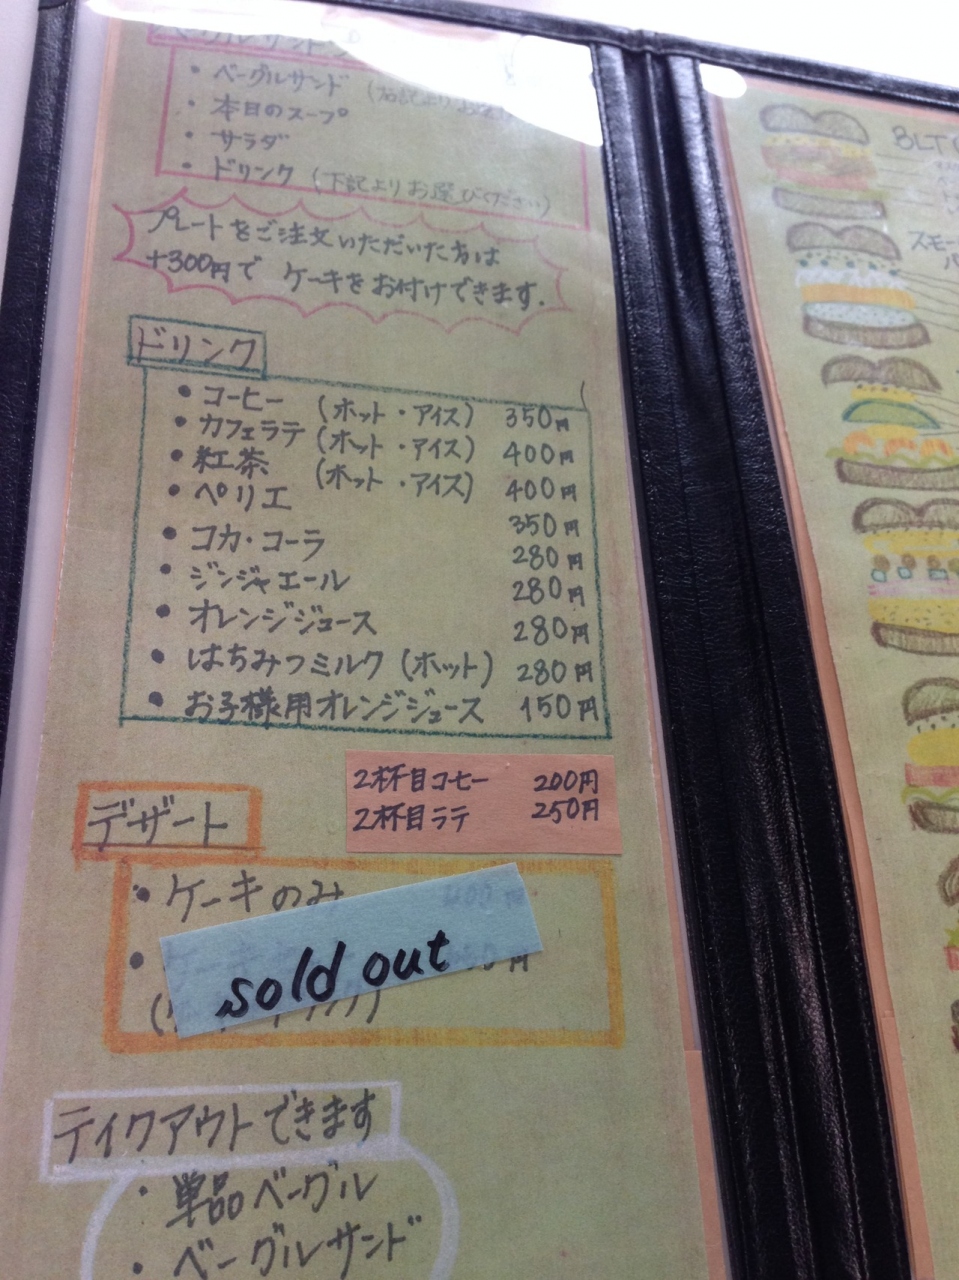 ベーグルサンド
・ベーグルサンド (右記よりお選び
・本日のスープ
・サラダ
・ドリンク (下記よりお選びください)
プレートをご注文いただいた方は
+300円で ケーキをお付けできます.
ドリンク
・コーヒー (ホット・アイス) 350円
・カフェラテ (ホット・アイス) 400円
・紅茶 (ホット・アイス) 400円
・ペリエ 350円
・コカ・コーラ 280円
・ジンジャエール 280円
・オレンジジュース 280円
・はちみつミルク (ホット) 280円
・お子様用オレンジジュース 150円
2杯目コーヒー 200円
2杯目ラテ 250円
デザート
・ケーキのみ 400円
sold out
テイクアウトできます
・単品ベーグル
・ベーグルサンド
BLT
スモー